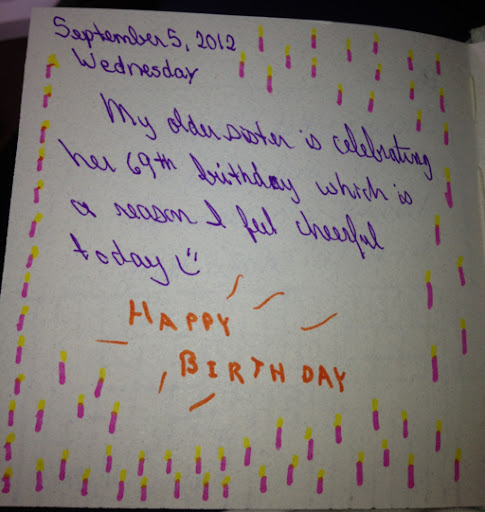 September 5, 2012
Wednesday
My older sister is celebrating
her 69th birthday which is
a reason I feel cheerful
today
HAPPY
BIRTHDAY